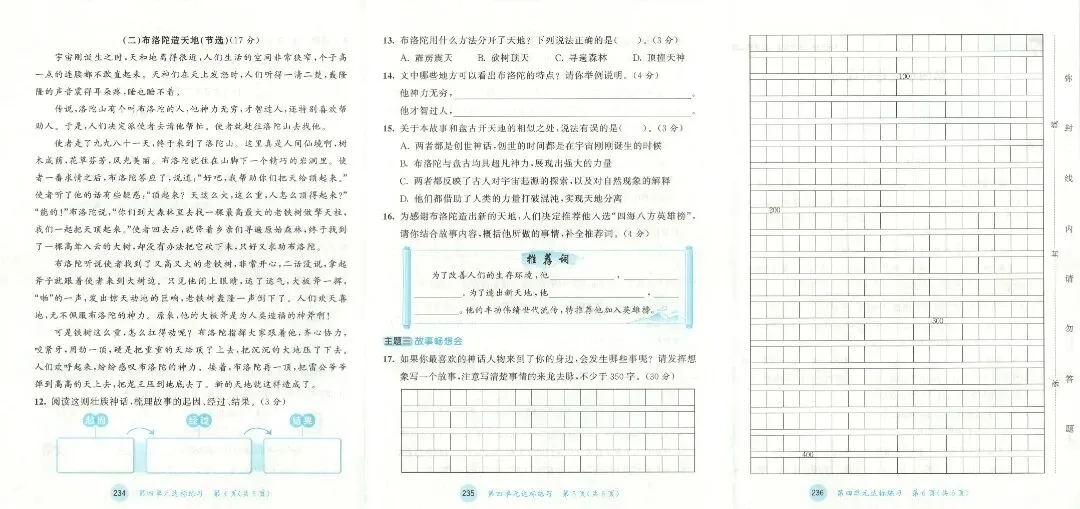 (二)布洛陀造天地(节选)(17分)
宇宙刚诞生之时,天和地离得很近,人们生活的空间非常狭窄,个子高
一点的连腰都不敢直起来。天神们在天上发怒时,人们听得一清二楚,轰隆
隆的声音震得耳朵疼,睡也睡不着。
传说,洛陀山有个叫布洛陀的人,他神力无穷,才智过人,还特别喜欢帮
助人。于是,人们决定派使者去请他帮忙。使者就赶往洛陀山去找他。
使者走了九九八十一天,终于来到了洛陀山。这里真是人间仙境啊,树
木成荫,花草芬芳,风光美丽。布洛陀就住在山脚下一个精巧的岩洞里。使
者一番求情之后,布洛陀答应了,说道:“好吧,我帮助你们把天给顶起来。”
使者听了他的话有些疑惑:“顶起来?天这么大,这么重,人怎么顶得起来?”
“能的!”布洛陀说,“你们到大森林里去找一棵最高最大的老铁树做擎天柱,
我们一起把天顶起来。”使者回去后,就带着乡亲们寻遍原始森林,终于找到
了一棵高耸入云的大树,却没有办法把它砍下来,只好又求助布洛陀。
布洛陀听说使者找到了又高又大的老铁树,非常开心,二话没说,拿起
斧子就跟着使者来到大树边。只见他闭上眼睛,运了运气,大板斧一挥,
“啪”的一声,发出惊天动地的巨响,老铁树轰隆一声倒下了。人们欢天喜
地,无不佩服布洛陀的神力。原来,他的大板斧是为人类造福的神斧啊!
可是铁树这么重,怎么扛得动呢?布洛陀指挥大家跟着他,齐心协力,
咬紧牙,用劲一顶,硬是把重重的天给顶了上去,把沉沉的大地压了下去。
人们欢呼起来,纷纷感叹布洛陀的神力。接着,布洛陀再一顶,把雷公爷爷
挪到高高的天上去,把龙王压到地底去了。新的天地就这样造成了。
12. 阅读这则壮族神话,梳理故事的起因、经过、结果。(3分)
起因 经过 结果
234 第四单元达标练习 第4页(共6页)
13. 布洛陀用什么方法分开了天地?下列说法正确的是( )。(3分)
A. 霹雳震天 B. 砍树顶天 C. 寻遍森林 D. 顶撞天神
14. 文中哪些地方可以看出布洛陀的特点?请你举例说明。(4分)
他神力无穷,
。
他才智过人,
。
15. 关于本故事和盘古开天地的相似之处,说法有误的是( )。(3分)
A. 两者都是创世神话,创世的时间都是在宇宙刚刚诞生的时候
B. 布洛陀与盘古均具超凡神力,展现出强大的力量
C. 两者都反映了古人对宇宙起源的探索,以及对自然现象的解释
D. 他们都借助了人类的力量打破混沌,实现天地分离
16. 为感谢布洛陀造出新的天地,人们决定推荐他入选“四海八方英雄榜”,
请你结合故事内容,概括他所做的事情,补全推荐词。(4分)
推荐词
为了改善人们的生存环境,他 ,
。为了造出新天地,他
。他的丰功伟绩世代流传,特推荐他加入英雄榜。
主题三 故事畅想会
17. 如果你最喜欢的神话人物来到了你的身边,会发生哪些事呢?请发挥想
象写一个故事,注意写清楚事情的来龙去脉,不少于350字。(30分)
235 第四单元达标练习 第5页(共6页)
100
200
300
400
236 第四单元达标练习 第6页(共6页)
你
封
线
内
请
勿
答
题